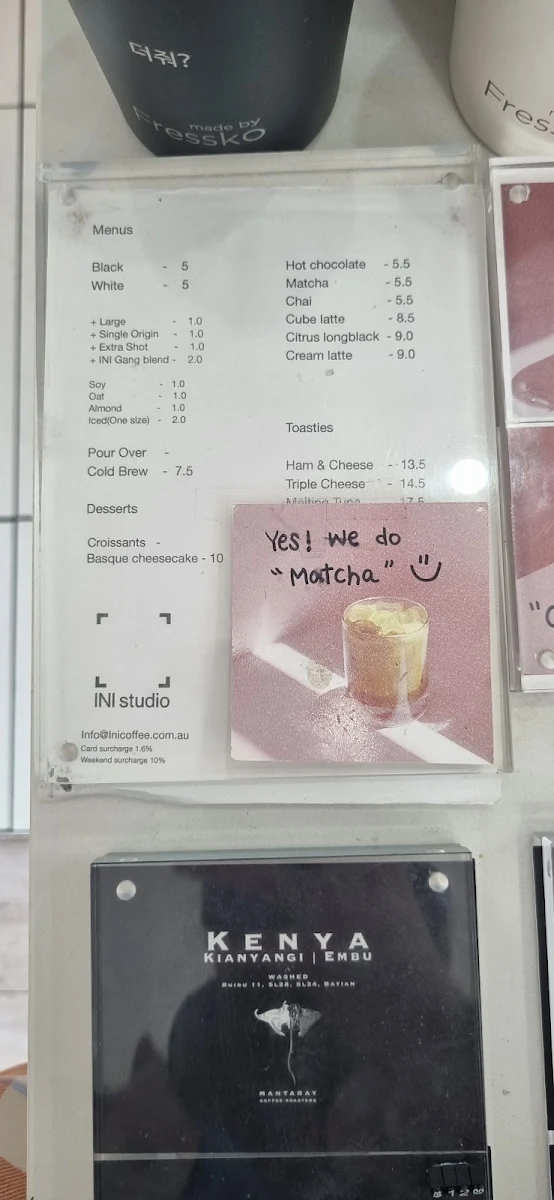 더줘?
made by
Fressko
Menus
Black - 5
White - 5
+ Large - 1.0
+ Single Origin - 1.0
+ Extra Shot - 1.0
+ INI Gang blend - 2.0
Soy - 1.0
Oat - 1.0
Almond - 1.0
Iced(One size) - 2.0
Pour Over -
Cold Brew - 7.5
Desserts
Croissants -
Basque cheesecake - 10
INI studio
Info@Inicoffee.com.au
Card surcharge 1.6%
Weekend surcharge 10%
Hot chocolate - 5.5
Matcha - 5.5
Chai - 5.5
Cube latte - 8.5
Citrus longblack - 9.0
Cream latte - 9.0
Toasties
Ham & Cheese - 13.5
Triple Cheese - 14.5
Melting Tuna 17.5
Yes! we do
"Matcha"
KENYA
KIANYANGI | EMBU
WASHED
RUIRU 11, SL28, SL34, BATIAN
MANTARAY
COFFEE ROASTERS